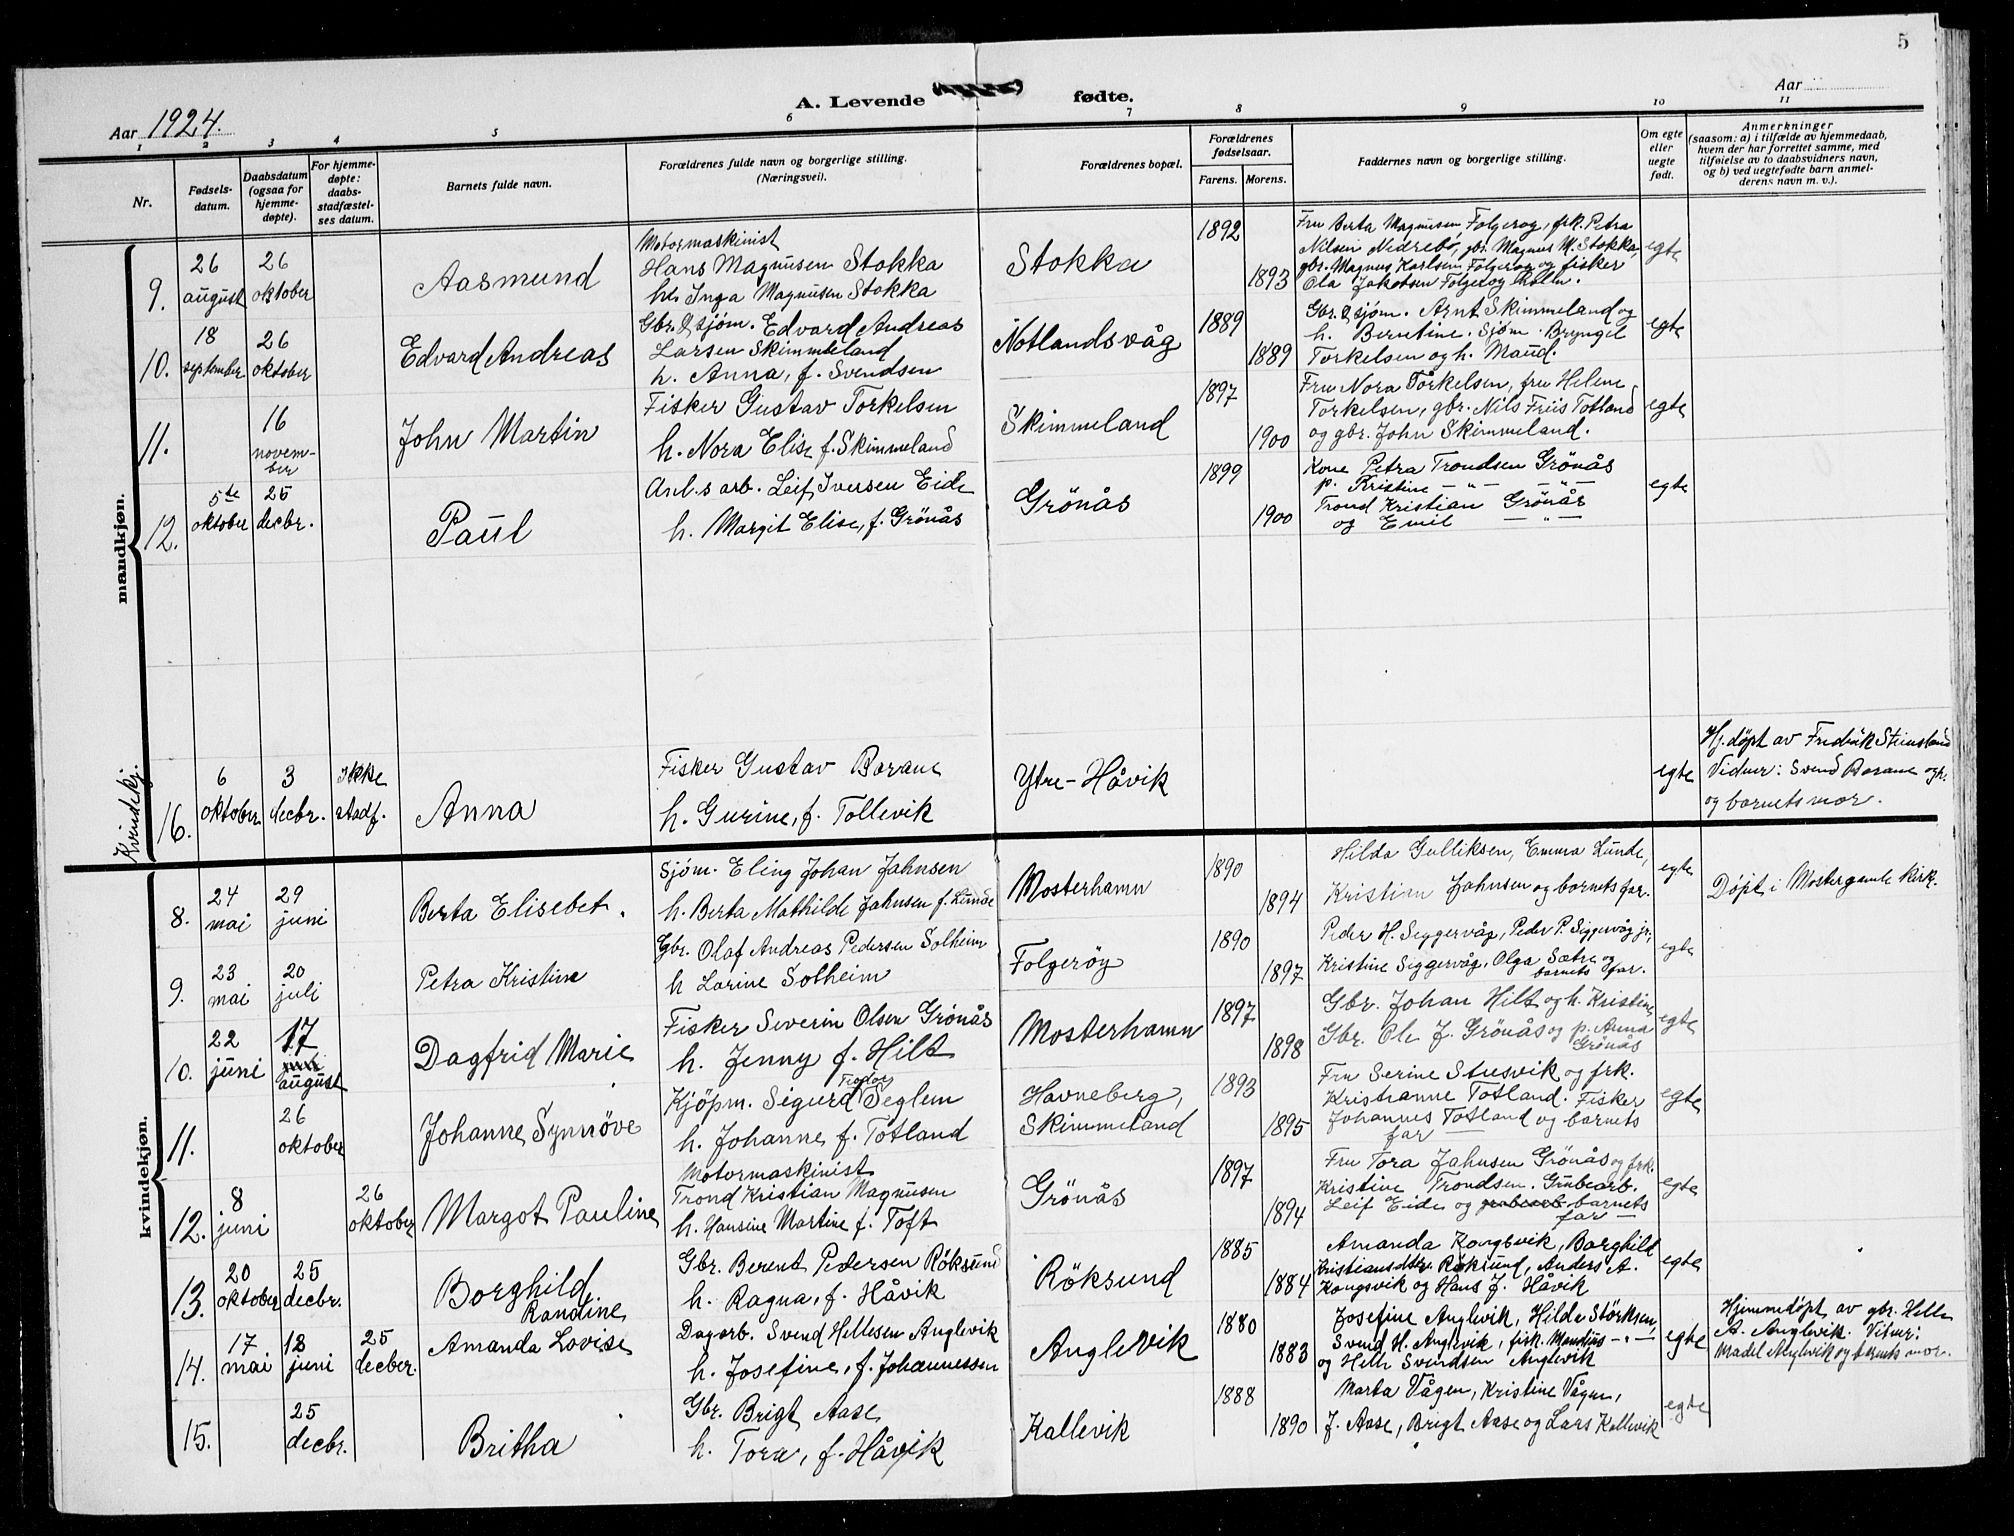 5
Aar 1924.
A. Levende
fødte.
Aar
1 2 3 4 5 6 7 8 9 10 11
Nr.
Fødsels-
datum.
Daabsdatum
(ogsaa for
hjemme-
døpte).
For hjemme-
døpte:
daabs-
stadfæstel-
ses datum.
Barnets fulde navn.
Forældrenes fulde navn og borgerlige stilling.
(Næringsvei).
Forældrenes bopæl.
Forældrenes
fødselsaar.
Farens. Morens.
Faddernes navn og borgerlige stilling.
Om egte
eller
uegte
født.
Anmerkninger
(saasom: a) i tilfælde av hjemmedaab,
hvem der har forrettet samme, med
tilføielse av to daabsvidners navn,
og b) ved uegtefødte barn anmel-
derens navn m. v.).
mandkjøn.
9.
26
august
26
oktober
Aasmund
Motormaskinist
Hans Magnusen Stokka
h. Inga Magnusen Stokka
Stokka
1892
1893
Fru Berta Magnusen, Folgerøy, frk. Petra
Nilsen Nidrebø, gbr. Magnus M. Stokka,
gbr. Magnus Karlsen Folgerøy og fisker
Ola Jakobsen Folgerøyholm.
egte
10.
18
september
26
oktober
Edvard Andreas
Gbr. & sjøm. Edvard Andreas
Larsen Skimmeland
h. Anna, f. Svendsen
Notlandsvåg
1889
1889
Gbr. & sjøm. Arnt Skimmeland og
h. Berntine. Sjøm. Bryngel
Torkelsen og h. Maud.
egte
11.
16
novem-
ber
John Martin
Fisker Gustav Torkelsen
h. Nora Elise f. Skimmeland
Skimmeland
1897
1900
Fru Nora Torkelsen, fru Helene
Torkelsen, gbr. Nils Friis Totland
og gbr. John Skimmeland.
egte
12.
5te
oktober
25
decbr.
Paul
Anl.s arb. Leif Iversen Eide
h. Margit Elise, f. Grönås
Grönås
1899
1900
Kone Petra Trondsen Grönås
p. Kristine — " — — " —
Trond Kristian Grönås
og Emil — " —
egte
Kvindekj.
16.
6
oktober
3
decbr.
Ikke
stadf.
Anna
Fisker Gustav Borane
h. Gurine, f. Tollevik
Ytre-Håvik
egte
Hj.døpt av Fredrik Steinsland
Vidner: Svend Borane og h.
og barnets mor.
kvindekjøn.
8.
24
mai
29
juni
Berta Elisebet.
Sjøm. Eling Johan Jahnsen
h. Berta Mathilde Jahnsen f. Lunde
Mosterhamn
1890
1894
Hilda Gulliksen, Emma Lunde,
Kristian Jahnsen og barnets far.
egte
Døpt i Moster gamle kirk.
9.
23
mai
20
juli
Petra Kristine
Gbr. Olaf Andreas Pedersen Solheim
h Larine Solheim
Folgerøy
1890
1897
Peder H. Siggervåg, Peder P. Siggervåg jr,
Kristine Siggervåg, Olga Sætre og
barnets far.
egte
10.
22
juni
17
august
Dagfrid Marie
Fisker Severin Olsen Grönås
h. Jenny f. Hilt
Mosterhamn
1897
1898
Gbr. Johan Hilt og h. Kristine
Gbr. Ole J. Grönås og p. Anna
Grönås
egte
11.
26
oktober
Johanne Synnöve
Kjöpm. Sigurd Teodor Seglem
h. Johanne f. Totland
Havneberg,
Skimmeland
1893
1895
Fru Serine Stusvik og frk.
Kristianne Totland. Fisker
Johannes Totland og barnets
far
egte
12.
8
juni
26
oktober
Margot Pauline
Motormaskinist
Trond Kristian Magnusen
h. Hansine Martine f. Toft
Grönås
1897
1894
Fru Tora Jahnsen Grönås og frk.
Kristine Trondsen. Grubearb.
Leif Eide og grubearb barnets
far —
egte
13.
20
oktober
25
decbr.
Borghild
Randine
Gbr. Berent Pedersen Röksund
h. Ragna, f. Håvik
Röksund
1885
1884
Amanda Kongsvik, Borghild
Kristiansdtr. Röksund, Anders A.
Kongsvik og Hans J. Håvik
egte
14.
17
mai
12
juni
25
decber.
Amanda Lovise
Dagarb. Svend Hellesen Anglevik
h. Josefine, f. Johannessen
Anglevik
1880
1883
Josefine Anglevik, Hilda Störksen,
Svend H. Anglevik, fisk. Mandius — " —
og Helle Svendsen Anglevik
egte
Hjemmedøpt av gbr. Helle
A. Anglevik. Vitner:
Madel Anglevik og barnets mor.
15.
25
decbr.
Britha
Gbr. Brigt Aase
h. Tora, f. Håvik
Kallevik
1888
1890
Marta Vågen, Kristine Vågen,
J. Aase, Brigt Aase og Lars Kallevik
egte